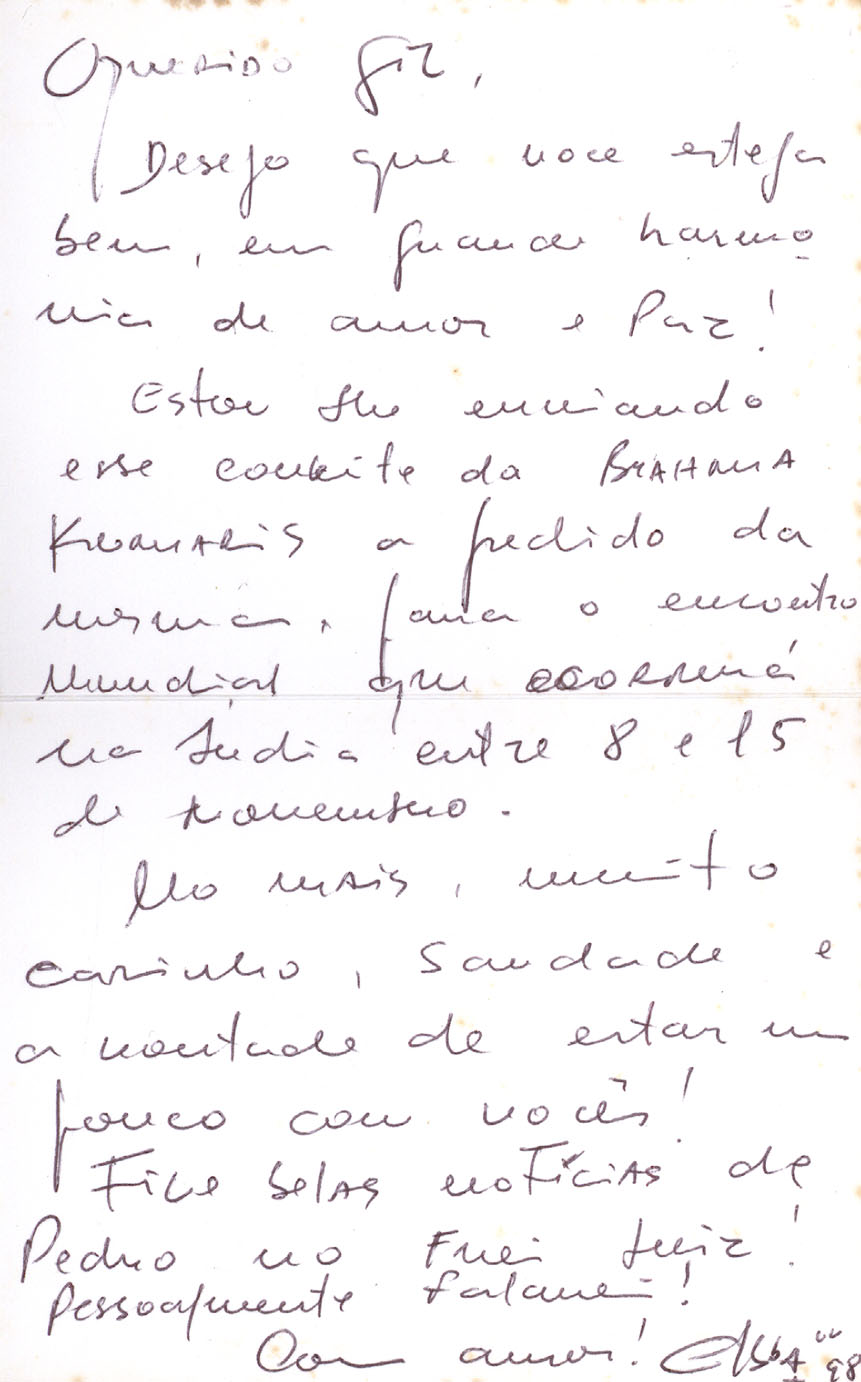 Querido Gil,
Desejo que voce esteja
bem, em grande harmo
nia de amor e Paz!
Estou lhe enviando
esse convite da BRAHMA
KUMARIS a pedido da
mesma, para o encontro
Mundial que ocorrerá
na Índia entre 8 e 15
de novembro.
No mais, muito
carinho, saudade e
a vontade de estar um
pouco com vocês!
Tive belas notícias de
Pedro no Frei Luiz!
Pessoalmente falarei!
Com amor! Elba 98